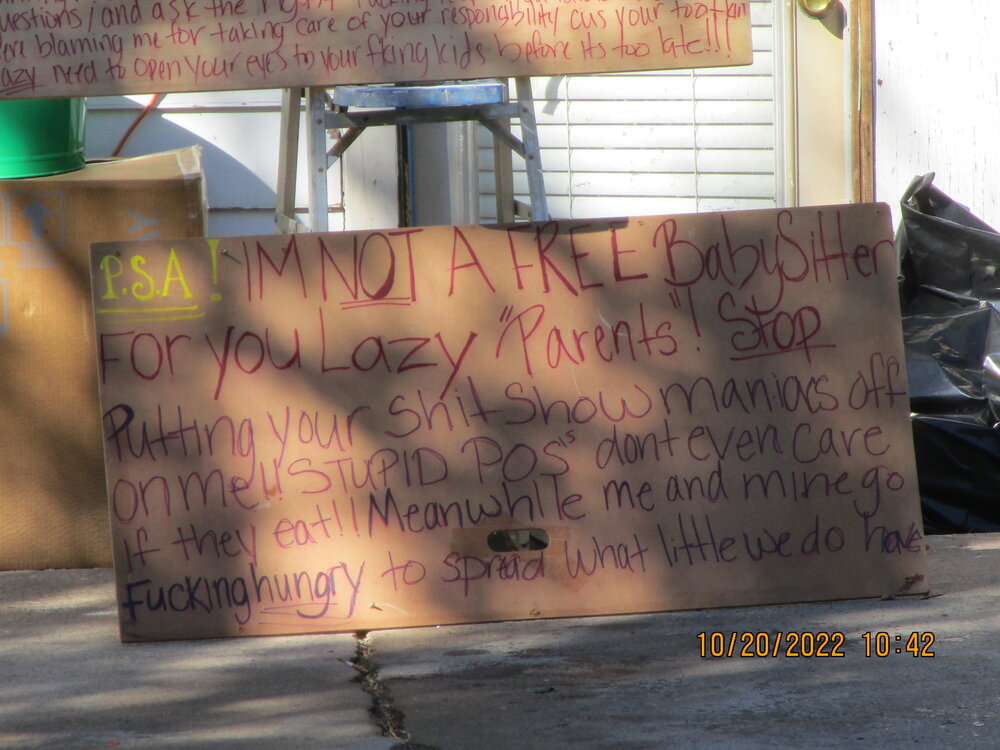 uestions/and ask the right
ere blaming me for taking care of your responsbility cus your too
azy need to open your eyes to your fking kids before its too late!!!
P.S.A! IM NOT A FREE BabySitter
For you Lazy "Parents"! Stop
Putting your shit show maniacs off
on me!! STUPID POS's dont even care
If they eat!! Meanwhile me and mine go
Fucking hungry to spread what little we do have
10/20/2022 10:42